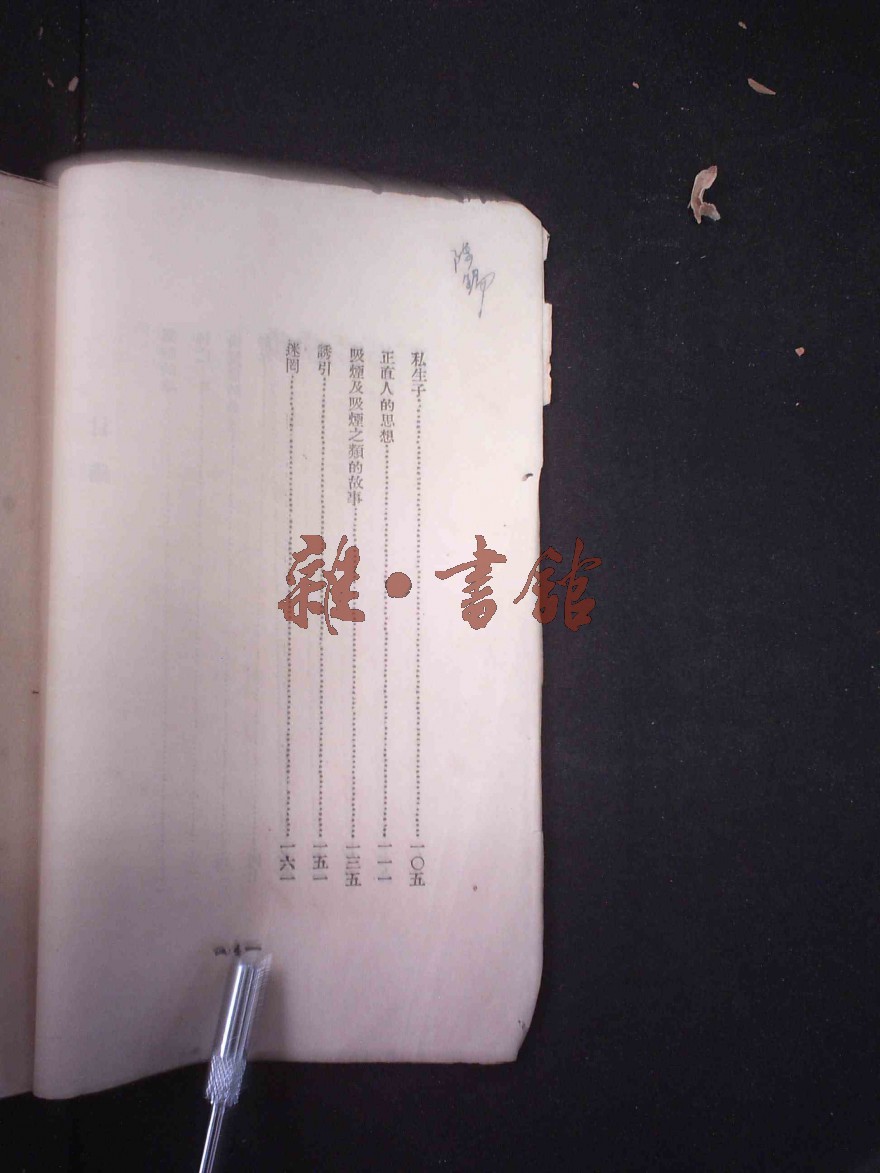 私生子……一〇五
正直人的思想……一一一
吸煙及吸煙之類的故事……一三五
誘引……一五一
迷罔……一六一
雜·書館